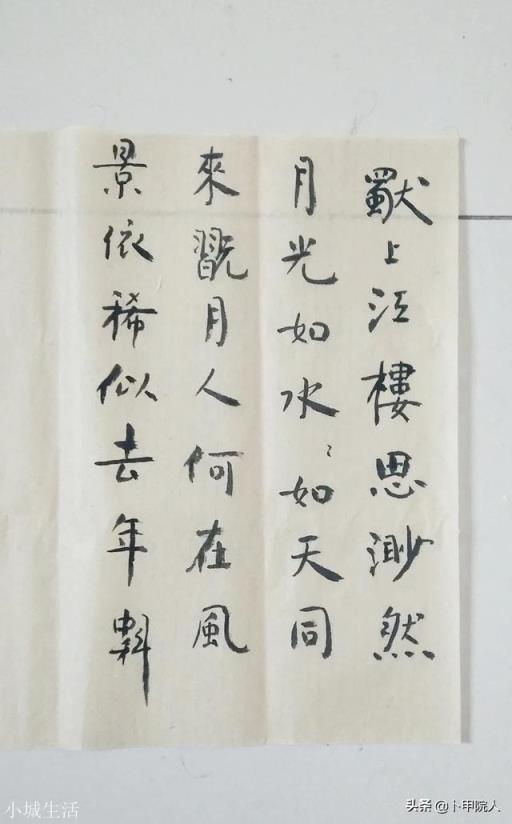 獨上江樓思渺然
月光如水〻如天同
來翫月人何在風
景依稀似去年
小城生活
头条 @卜甲院人